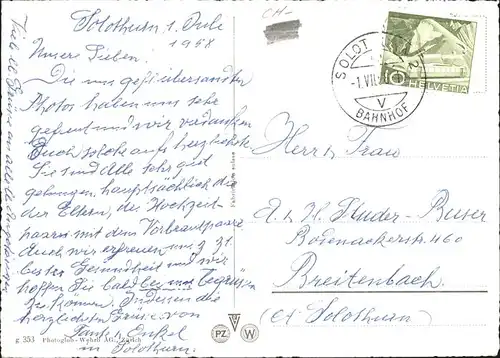 Solothurn 1. Juli
1958
Unsere Lieben.
Die uns gefl. übersandten
Photos haben uns sehr
gefreut und wir verdanken
Euch solche aufs herzlichste.
Sie sind Alle sehr gut
gelungen, hauptsächlich die
der Eltern, des Hochzeit-
paares mit dem Vorbrautpaare.
Auch wir erfreuen uns z. Zt.
bester Gesundheit und wir
hoffen Sie bald bei uns begrüssen
zu können. Indessen die
herzlichsten Grüsse von
Tante u. Onkel
in Solothurn.
CH
SOLOTHURN 2
-1.VII.
V
BAHNHOF
10
HELVETIA
Herrn & Frau
A. & H. Studer-Buser
Bodenackerstr. 460
Breitenbach.
(Ct. Solothurn)
PZ
W
g 353 Photoglob-Wehrli AG., Zürich